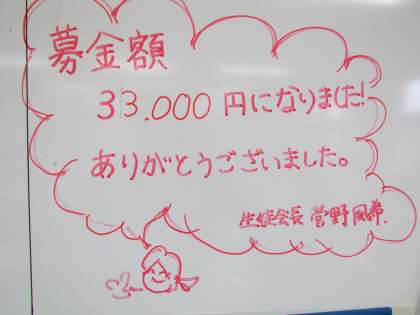 募金額
33.000円になりました!
ありがとうございました。
生徒会長 菅野風希.